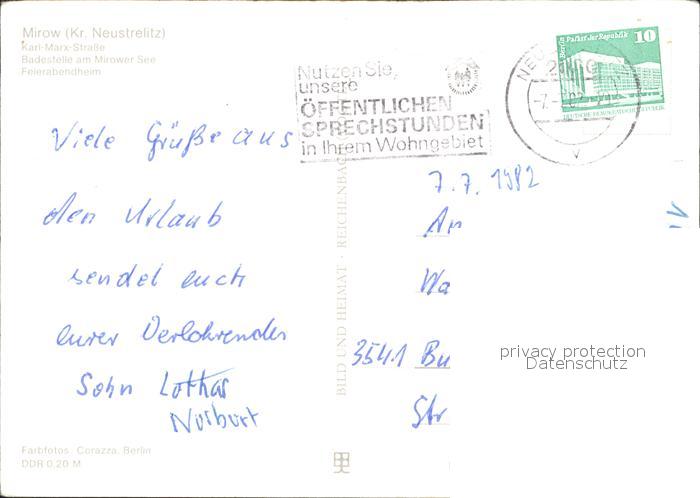 Mirow (Kr. Neustrelitz)
Karl-Marx-Straße
Badestelle am Mirower See
Feierabendheim
Nutzen Sie,
unsere
ÖFFENTLICHEN
SPRECHSTUNDEN
in Ihrem Wohngebiet
Berlin Palast der Republik
10
DEUTSCHE DEMOKRATISCHE REPUBLIK
Viele Grüße aus
den Urlaub
sendet euch
eurer
Sohn Lothar
Norbert
7.7.1982
An
Wa
3541 Bu
Str
BILD UND HEIMAT · REICHENBACH
privacy protection
Datenschutz
Farbfotos: Corazza, Berlin
DDR 0,20 M